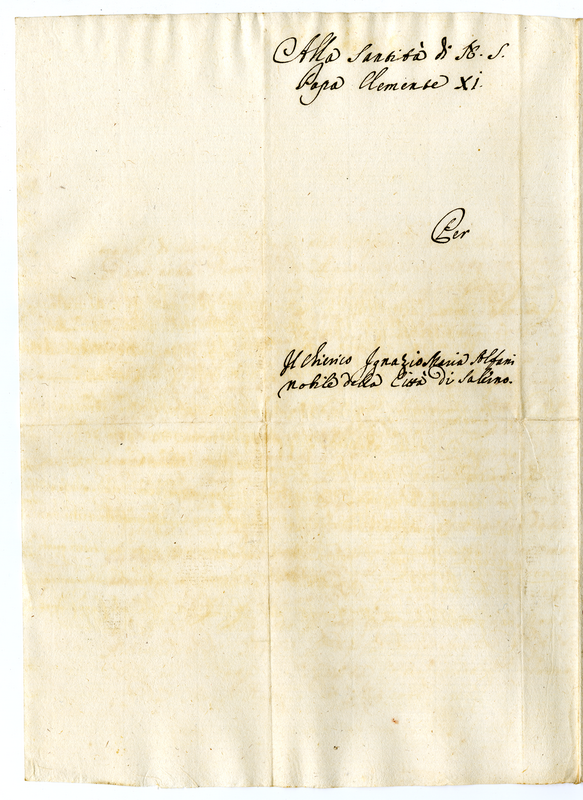 Alla Santità di N. S.
Papa Clemente XI.
Per
Il Chierico Ignazio Maria Alfani
nobile della Città di Salerno.